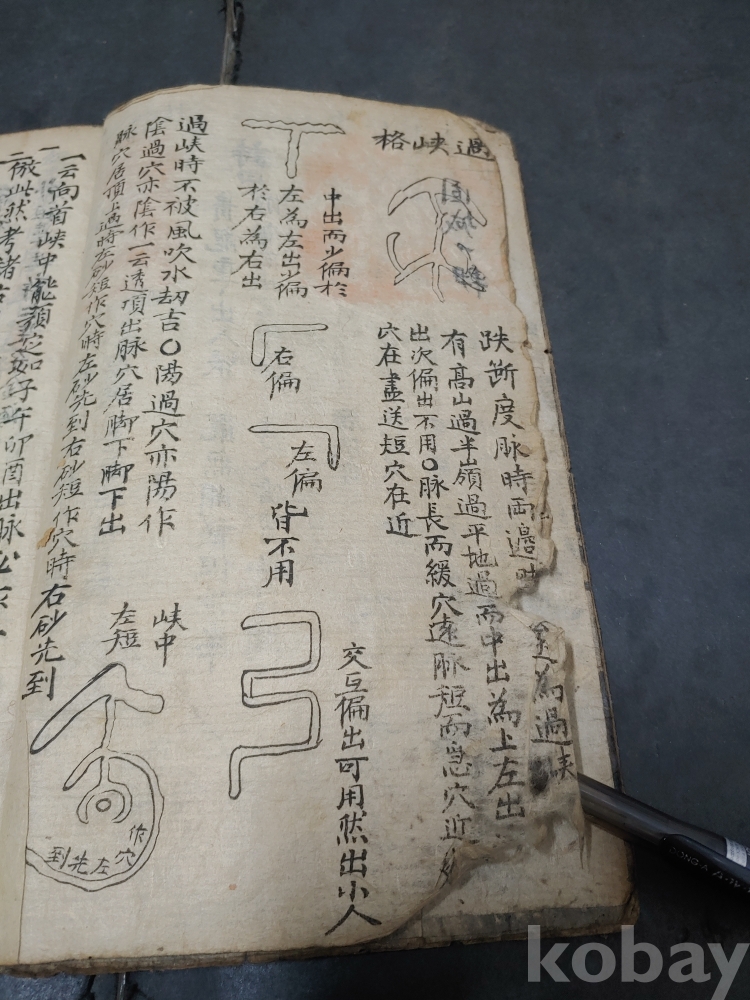 過峽格
跌斷度脉時兩邊
為過峽
有高山過半嶺過平地過而中出為上左出
出次偏出不用〇脉長而緩穴遠脉短而急穴近
穴在盡送短穴在近
中出而少偏於
左為左出少偏
於右為右出
右偏
左偏
皆不用
交互偏出可用然出小人
過峽時不被風吹水刼吉〇陽過穴亦陽作
陰過穴亦陰作一云透頂出脉穴居脚下脚下出
脉穴居頂上過時左砂短作穴時左砂先到右砂短作穴時右砂先到
峽中
左短
作穴左先到
一云向首峽中龍頭定如子午卯酉出脉
倣此然考諸
kobay